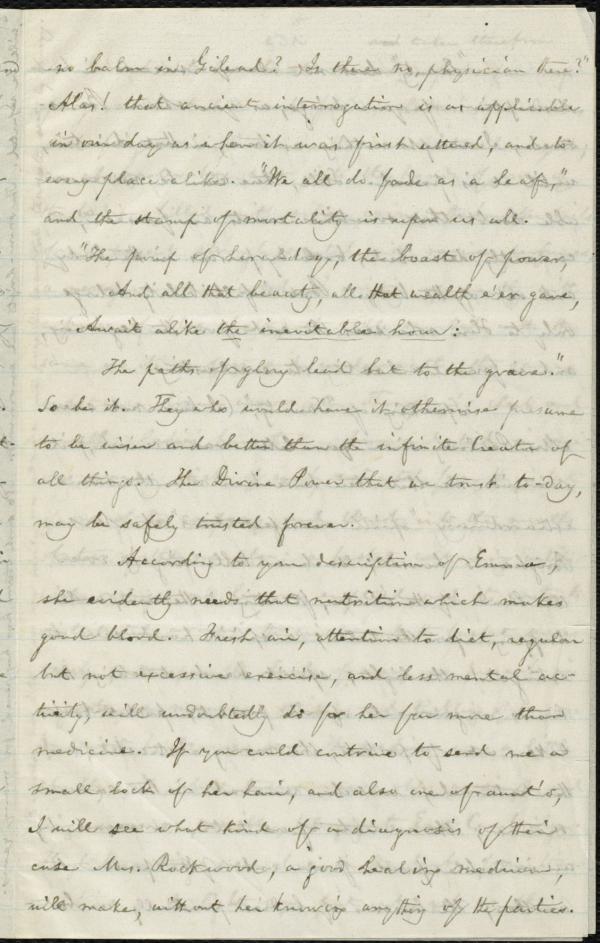 no balm in Gilead? Is there no physician there?"
Alas! that ancient interrogation is as applicable
in our day as when it was first uttered, and to
every place alike. "We all do fade as a leaf,"
and the stamp of mortality is upon us all.
"The pomp of heraldry, the boast of power,
And all that beauty, all that wealth e'er gave,
Await alike the inevitable hour:
The paths of glory lead but to the grave."
So be it. They who would have it otherwise presume
to be wiser and better than the infinite Creator of
all things. The Divine Power that we trust to-day,
may be safely trusted forever.
According to your description of Emma,
she evidently needs that nutrition which makes
good blood. Fresh air, attention to diet, regular
but not excessive exercise, and less mental ac-
tivity, will undoubtedly do for her far more than
medicine. If you could contrive to send me a
small lock of her hair, and also one of aunt's,
I will see what kind of a diagnosis of their
case Mrs. Rockwood, a good healing medium,
will make, without her knowing anything of the parties.